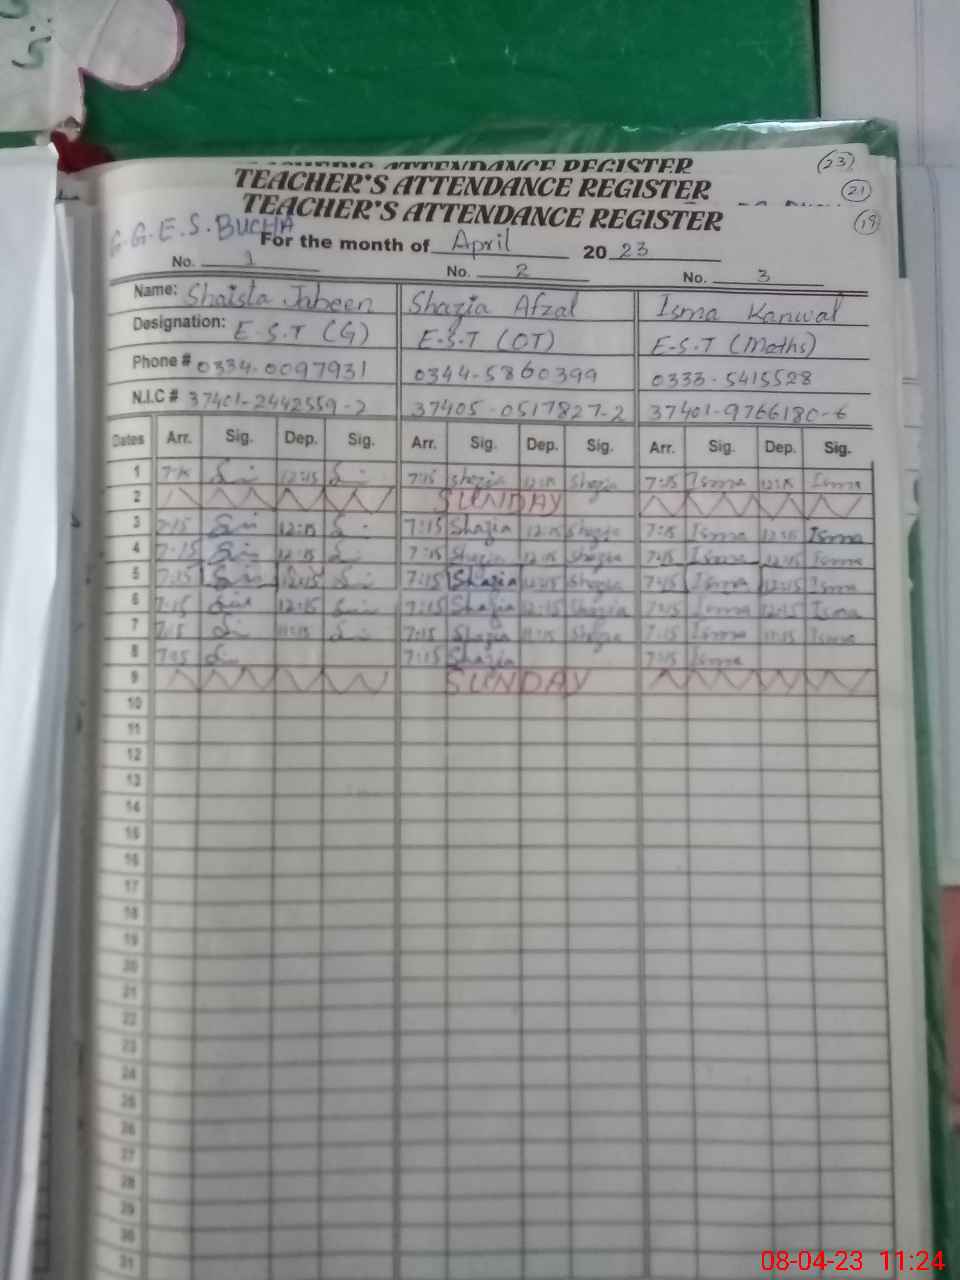 TEACHER'S ATTENDANCE REGISTER (23)
TEACHER'S ATTENDANCE REGISTER (21)
TEACHER'S ATTENDANCE REGISTER (19)
G.G.E.S. BUCHA
For the month of April 2023
No. 1 No. 2 No. 3
Name: Shaista Jabeen Shazia Afzal Isma Kanwal
Designation: E-S.T (G) E-S.T (OT) E-S.T (Maths)
Phone # 0334-0097931 0344-5860399 0333-5415528
N.I.C # 37401-2442559-2 37405-0517827-2 37401-9766180-6
Dates Arr. Sig. Dep. Sig. Arr. Sig. Dep. Sig. Arr. Sig. Dep. Sig.
1 7:15 12:15 7:15 Shazia 12:15 Shazia 7:15 Isma 12:15 Isma
2 SUNDAY
3 7:15 12:15 7:15 Shazia 12:15 Shazia 7:15 Isma 12:15 Isma
4 7:15 12:15 7:15 Shazia 12:15 Shazia 7:15 Isma 12:15 Isma
5 7:15 12:15 7:15 Shazia 12:15 Shazia 7:15 Isma 12:15 Isma
6 7:15 12:15 7:15 Shazia 12:15 Shazia 7:15 Isma 12:15 Isma
7 7:15 11:15 7:15 Shazia 11:15 Shazia 7:15 Isma 11:15 Isma
8 7:15 7:15 Shazia 7:15 Isma
9 SUNDAY
10
11
12
13
14
15
16
17
18
19
20
21
22
23
24
25
26
27
28
29
30
31
08-04-23 11:24